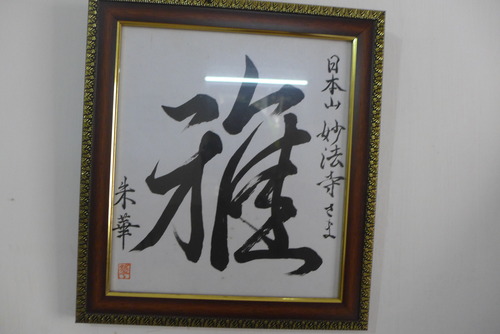 日本山 妙法寺さま
雅
朱華